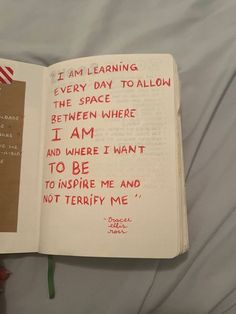 I AM LEARNING
EVERY DAY TO ALLOW
THE SPACE
BETWEEN WHERE
I AM
AND WHERE I WANT
TO BE
TO INSPIRE ME AND
NOT TERRIFY ME "
- Tracee
ellis
ross